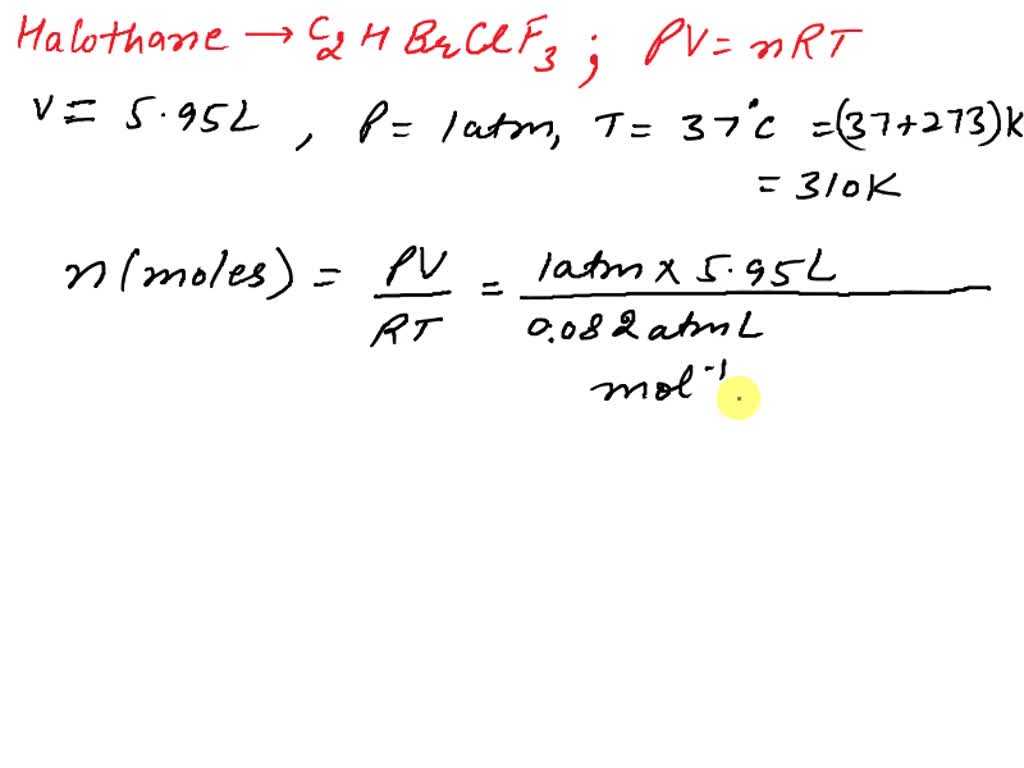 Halothane → C₂HBrClF₃ ; PV = nRT
V = 5.95L , P = 1atm, T = 37°C = (37+273)K
= 310K
n(moles) = PV/RT = 1atm x 5.95L
0.082 atm L
mol⁻¹